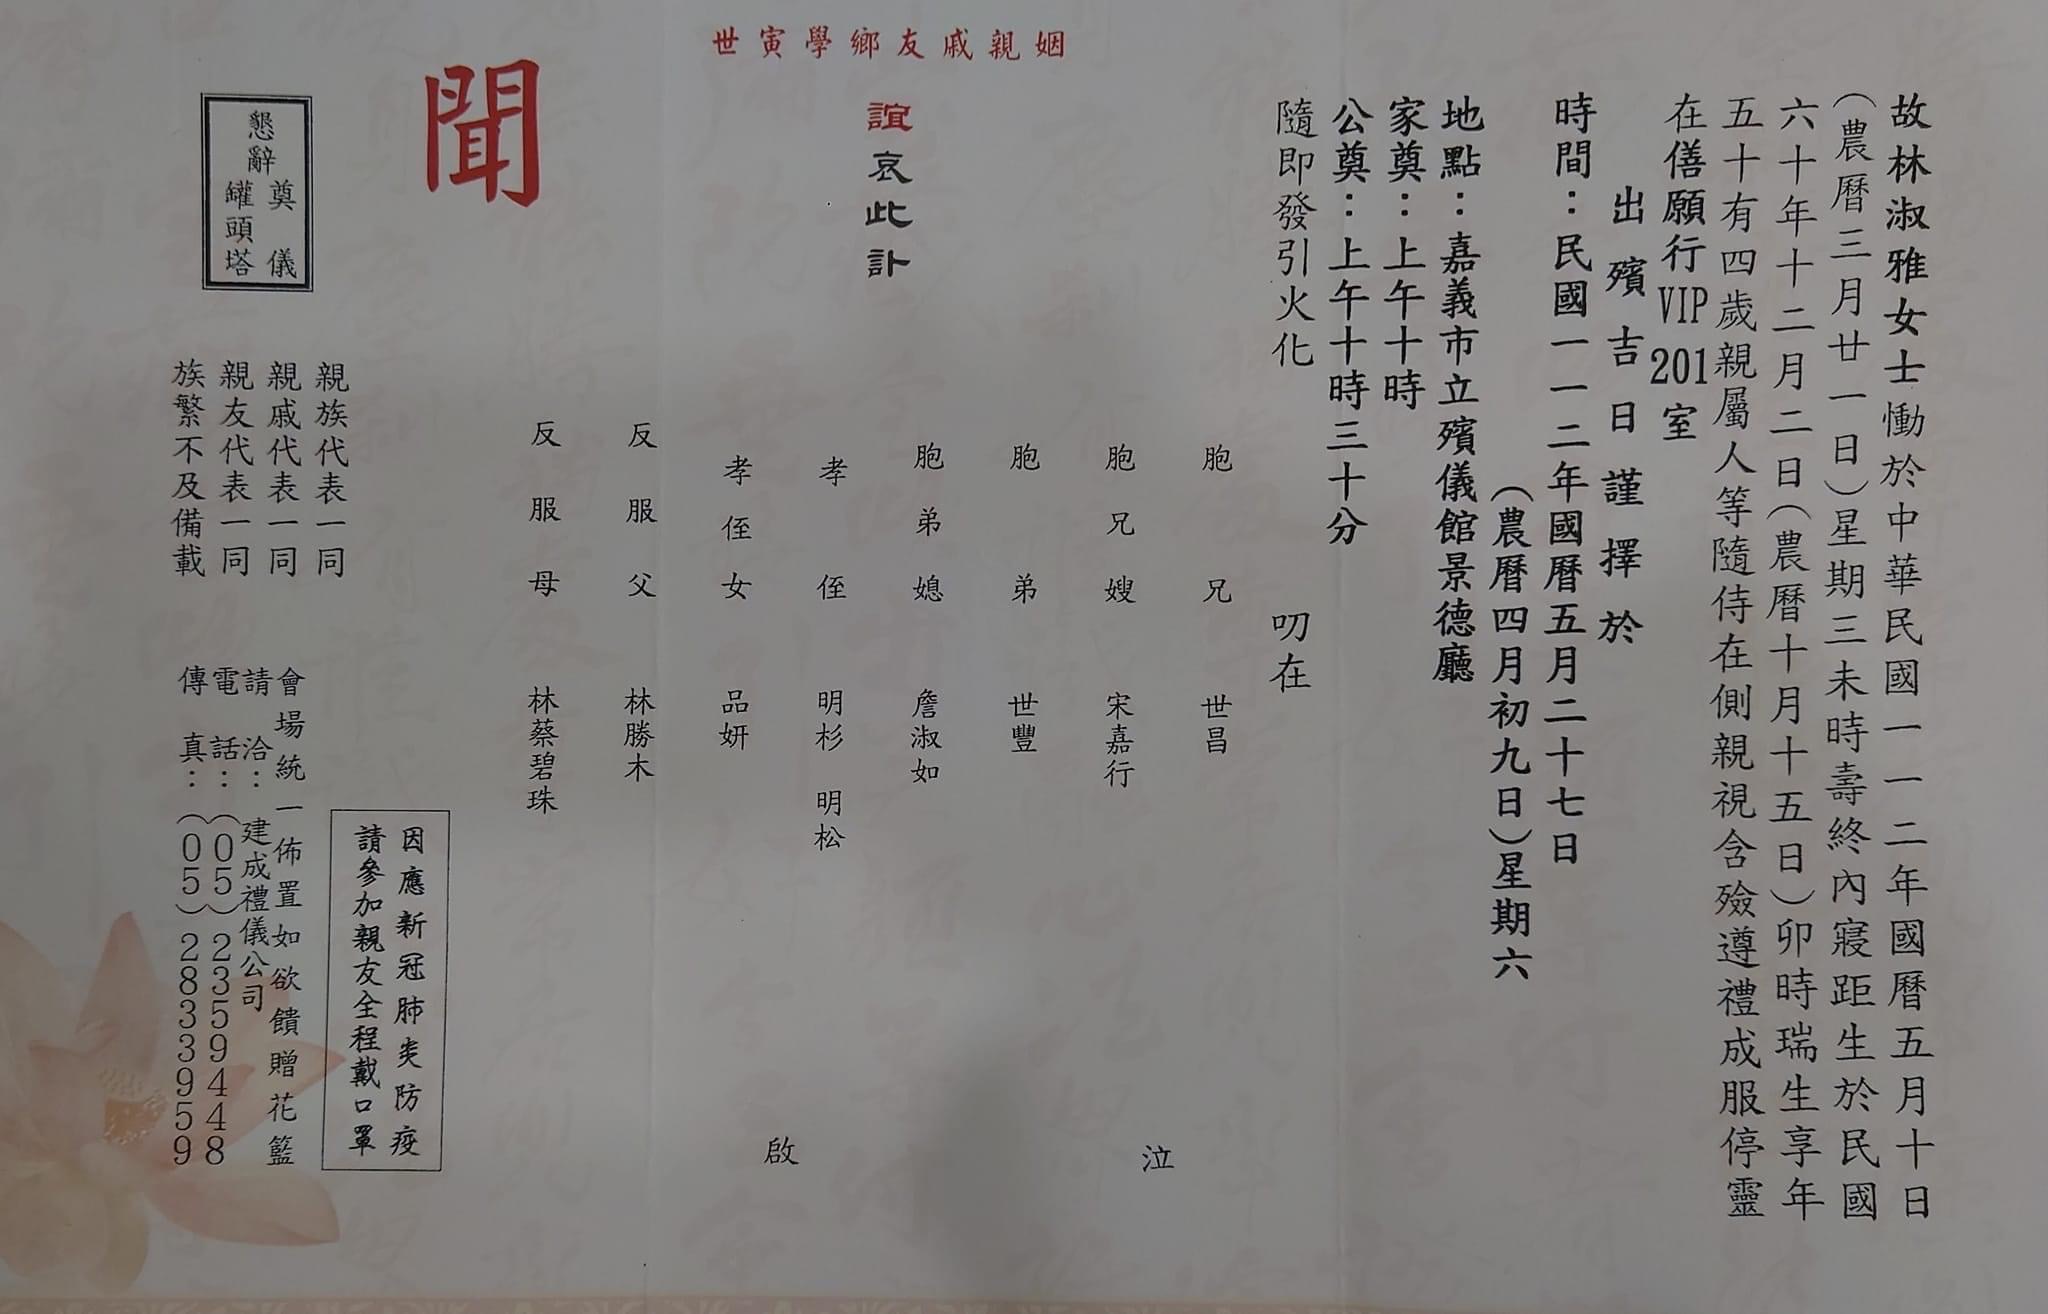 故林淑雅女士慟於中華民國一一二年國曆五月十日
（農曆三月廿一日）星期三未時壽終內寢距生於民國
六十年十二月二日（農曆十月十五日）卯時瑞生享年
五十有四歲親屬人等隨侍在側親視含殮遵禮成服停靈
在僐願行VIP201室
出殯吉日謹擇於
時間：民國一一二年國曆五月二十七日
（農曆四月初九日）星期六
地點：嘉義市立殯儀館景德廳
家奠：上午十時
公奠：上午十時三十分
隨即發引火化
叨在
姻親戚友鄉學寅世
誼哀此訃
聞
胞兄 世昌
胞兄嫂 宋嘉行
胞弟 世豐
胞弟媳 詹淑如
孝侄 明杉 明松
孝侄女 品妍
反服父 林勝木
反服母 林蔡碧珠
泣
啟
懇辭
奠儀
罐頭塔
親族代表一同
親戚代表一同
親友代表一同
族繁不及備載
因應新冠肺炎防疫
請參加親友全程戴口罩
會場統一佈置如欲饋贈花籃
請洽：建成禮儀公司
電話：（05）2359448
傳真：（05）2833959